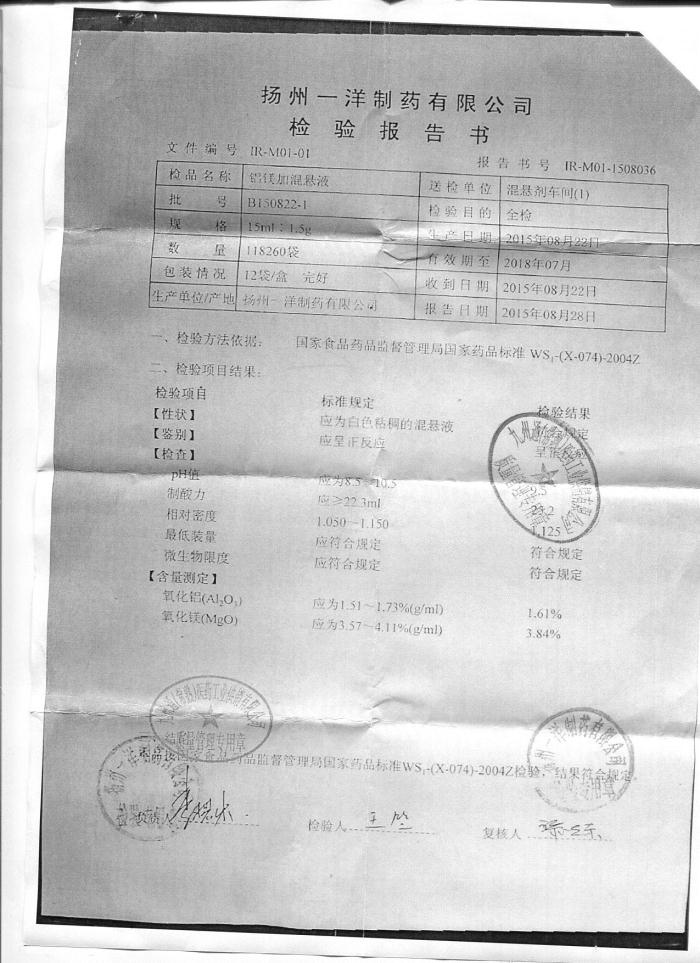 扬州一洋制药有限公司
检验报告书
文件编号 IR-M01-01
报告书号 IR-M01-1508036
检品名称 铝镁加混悬液 送检单位 混悬剂车间(1)
批号 B150822-1 检验目的 全检
规格 15ml：1.5g 生产日期 2015年08月22日
数量 118260袋 有效期至 2018年07月
包装情况 12袋/盒 完好 收到日期 2015年08月22日
生产单位/产地 扬州一洋制药有限公司 报告日期 2015年08月28日
一、检验方法依据： 国家食品药品监督管理局国家药品标准 WS₁-(X-074)-2004Z
二、检验项目结果：
检验项目 标准规定 检验结果
【性状】 应为白色粘稠的混悬液 符合规定
【鉴别】 应呈正反应 呈正反应
【检查】
pH值 应为8.5～10.5
制酸力 应≥22.3ml 23.2
相对密度 1.050～1.150 1.125
最低装量 应符合规定 符合规定
微生物限度 应符合规定 符合规定
【含量测定】
氧化铝(Al₂O₃) 应为1.51～1.73%(g/ml) 1.61%
氧化镁(MgO) 应为3.57～4.11%(g/ml) 3.84%
药品监督管理局国家药品标准WS₁-(X-074)-2004Z检验，结果符合规定
质量管理专用章
扬州一洋制药有限公司
专用章
检验人 王竺 复核人